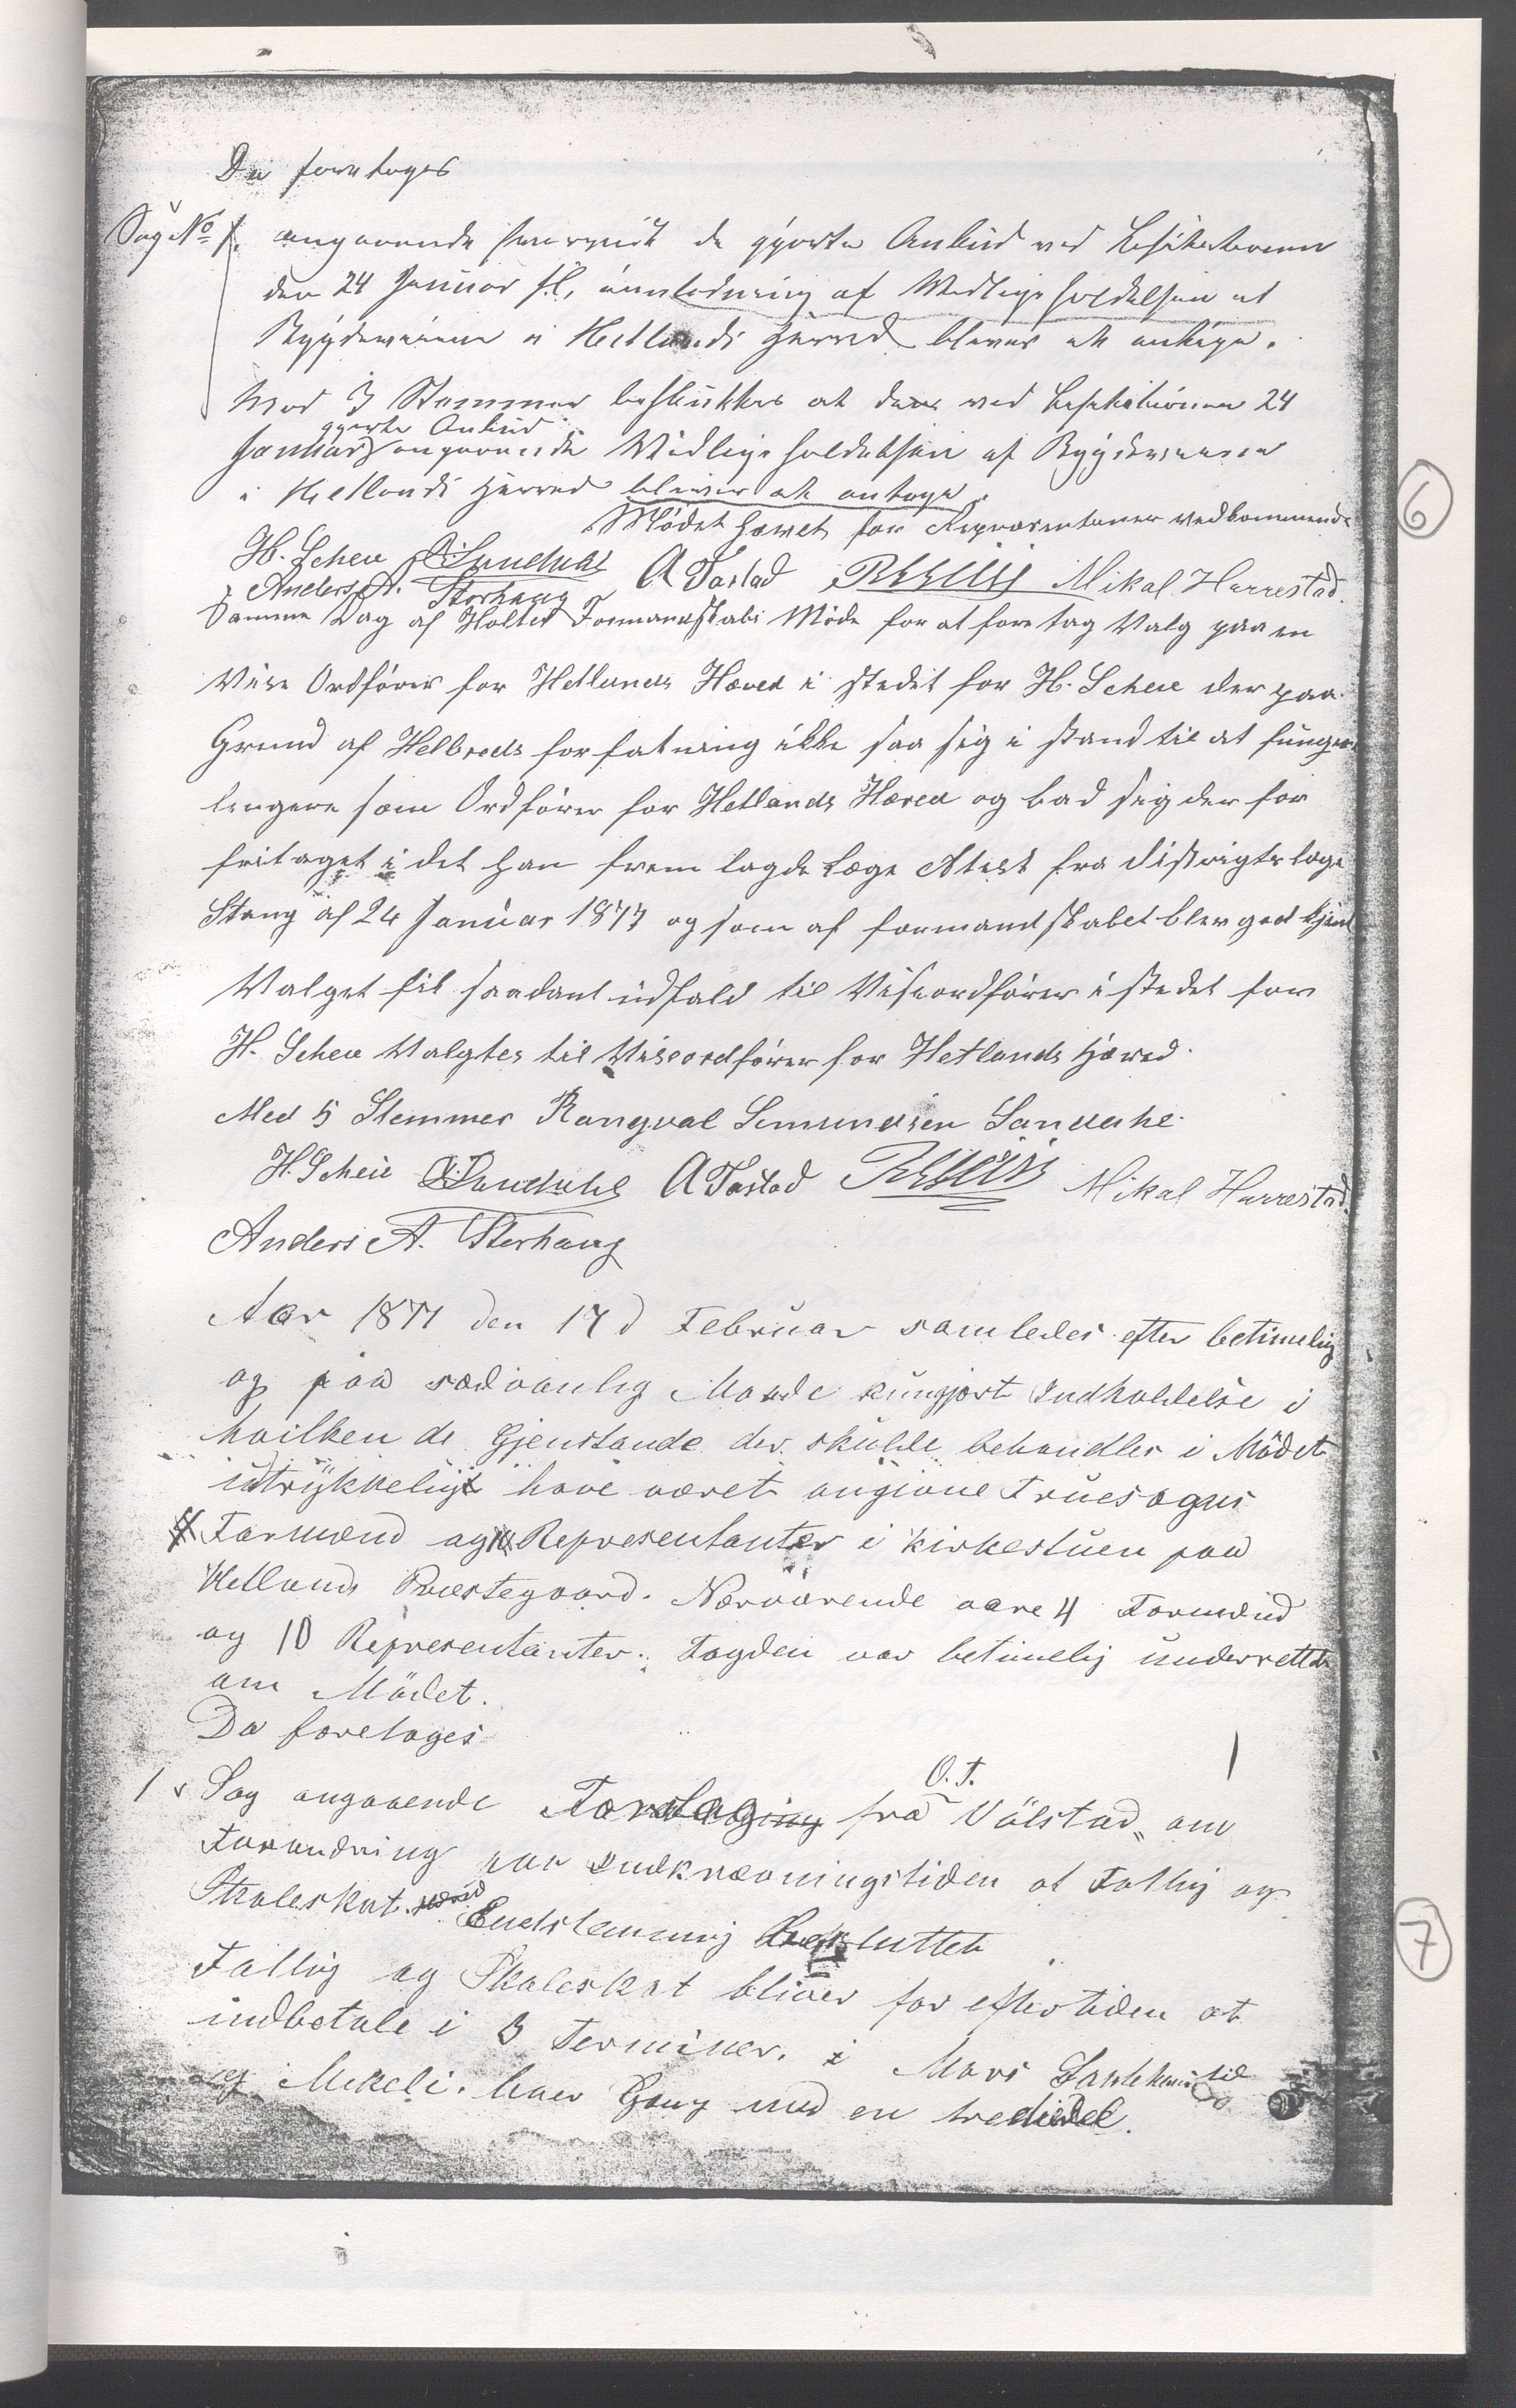 Da foretoges
Sag No 1. angaaende hvorvidt de gjorte Anbud ved Licitationen
den 24 Januar f.l., Vedligeholdelsen af
Bygdeveiene i Hetlands Herred bliver at antage.
Mod 3 Stemmer besluttes at de ved Licitationen 24
gjorte Anbud
Januar angaaende Vedligeholdelsen af Bygdeveiene
i Hetlands Herred bliver at antage.
Mödet hævet for Repræsentanter vedkommende
H. Scheie Sandahl A Tastad Mikal Harrestad.
Anders A. Storhaug
Samme Dag af Holtes Formannskabs Möde for at foretag Valg paa en
Vise Ordfører for Hetlands Hæred i stedet for H. Scheie der paa
Grund af Helbreds forfatning ikke saa sig i stand til at fungere
lengere som Ordfører for Hetlands Hæred og bad sig der for
fritaget i det han frem lagde Læge Atest fra Distrigts læge
Stang af 24 Januar 1877 og som af formandskabet blev godkjent
Valget fik saadant udfald til Viseordfører i stedet for
H. Scheie Valgtes til Viseordfører for Hetlands Hæred.
Med 5 Stemmer Rangval Semundsen Sandahl.
H. Scheie Sandahl A Tastad Mikal Harrestad.
Anders A. Storhaug
Aar 1877 den 17d Februar samledes efter betimelig
og paa sædvanlig Maade kungjort Indkaldelse i
hvilken de Gjenstande der skulde behandles i Mödet
udtrykkeligt have været angivne
Formænd og Representanter i Kirkestuen paa
Hetlands Præstegaard. Nærværende vare 4 Formænd
og 10 Representanter. Fogden var betimelig underrettet
om Mödet.
Da foretoges
1 Sag angaaende Forslag fra O. T. Völstad om
Forandring paa Indkrævningstiden af Fattig og
Skoleskat. Endstemmig Besluttet
Fattig og Skoleskat bliver for eftertiden at
indbetale i 3 Terminer. i Mars Sankthans til
og Mikeli. hver Gang med en trediedel.
6
7